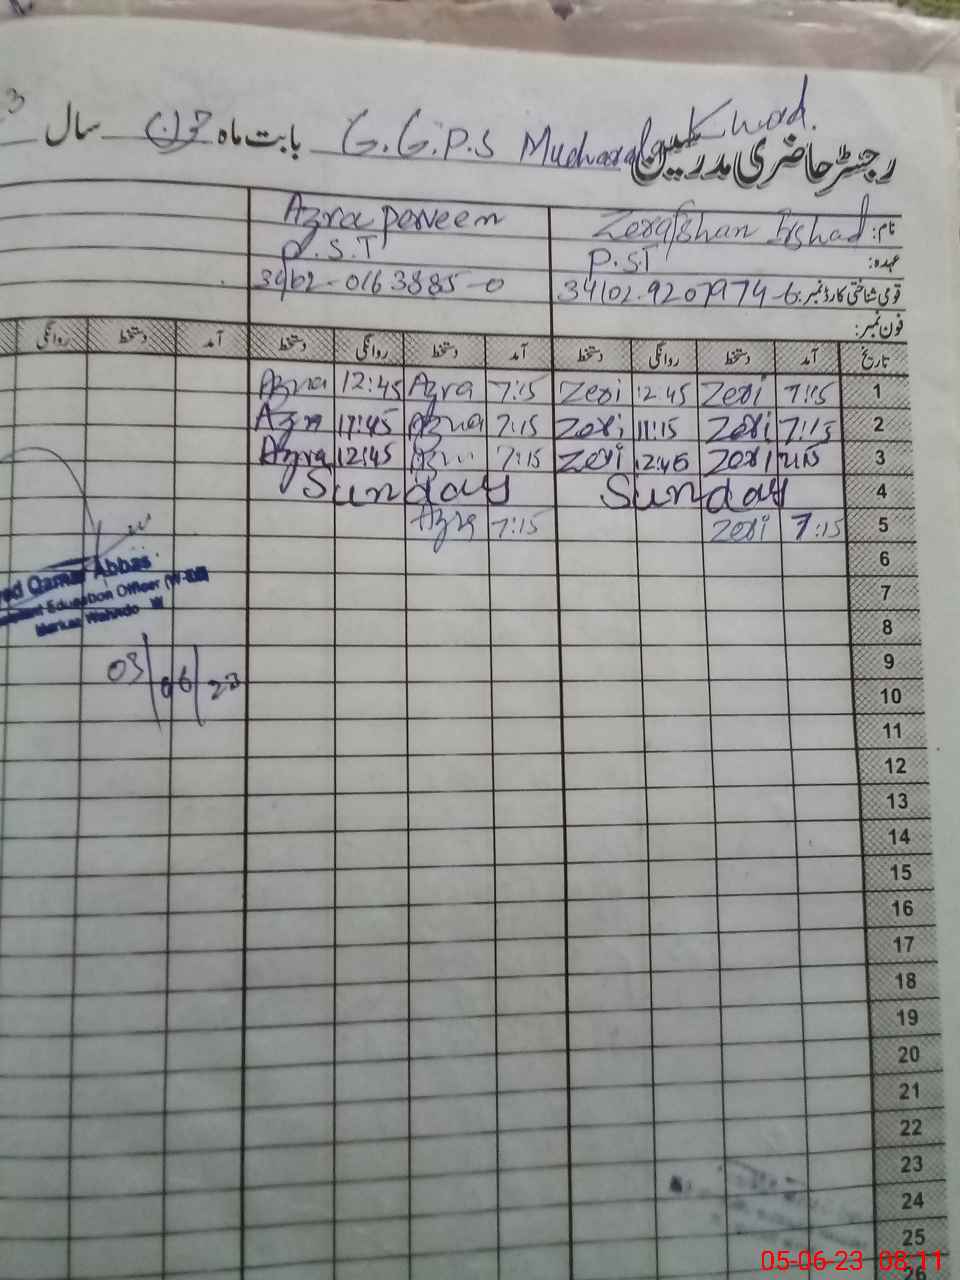 رجسٹر حاضری مدرسین G.G.P.S Mucharala Khurd. بابت ماہ جون سال 3
نام: Zerafshan Irshad Azra perveen
عہدہ: P.S.T P.S.T
قومی شناختی کارڈ نمبر: 34102-9207974-6 34102-0163885-0
فون نمبر:
تاریخ آمد دستخط روانگی دستخط آمد دستخط روانگی دستخط آمد دستخط روانگی
1 7:15 Zeri 12:45 Zeri 7:15 Azra 12:45 Azra
2 7:15 Zeri 11:15 Zeri 7:15 Azra 11:45 Azra
3 7:15 Zeri 12:45 Zeri 7:15 Azra 12:45 Azra
4 Sunday Sunday
5 7:15 Zeri 7:15 Azra
6
7
8
9
10
11
12
13
14
15
16
17
18
19
20
21
22
23
24
25
26
Qamar Abbas
Education Officer
Markaz Wahndo
03/06/23
05-06-23 08:11